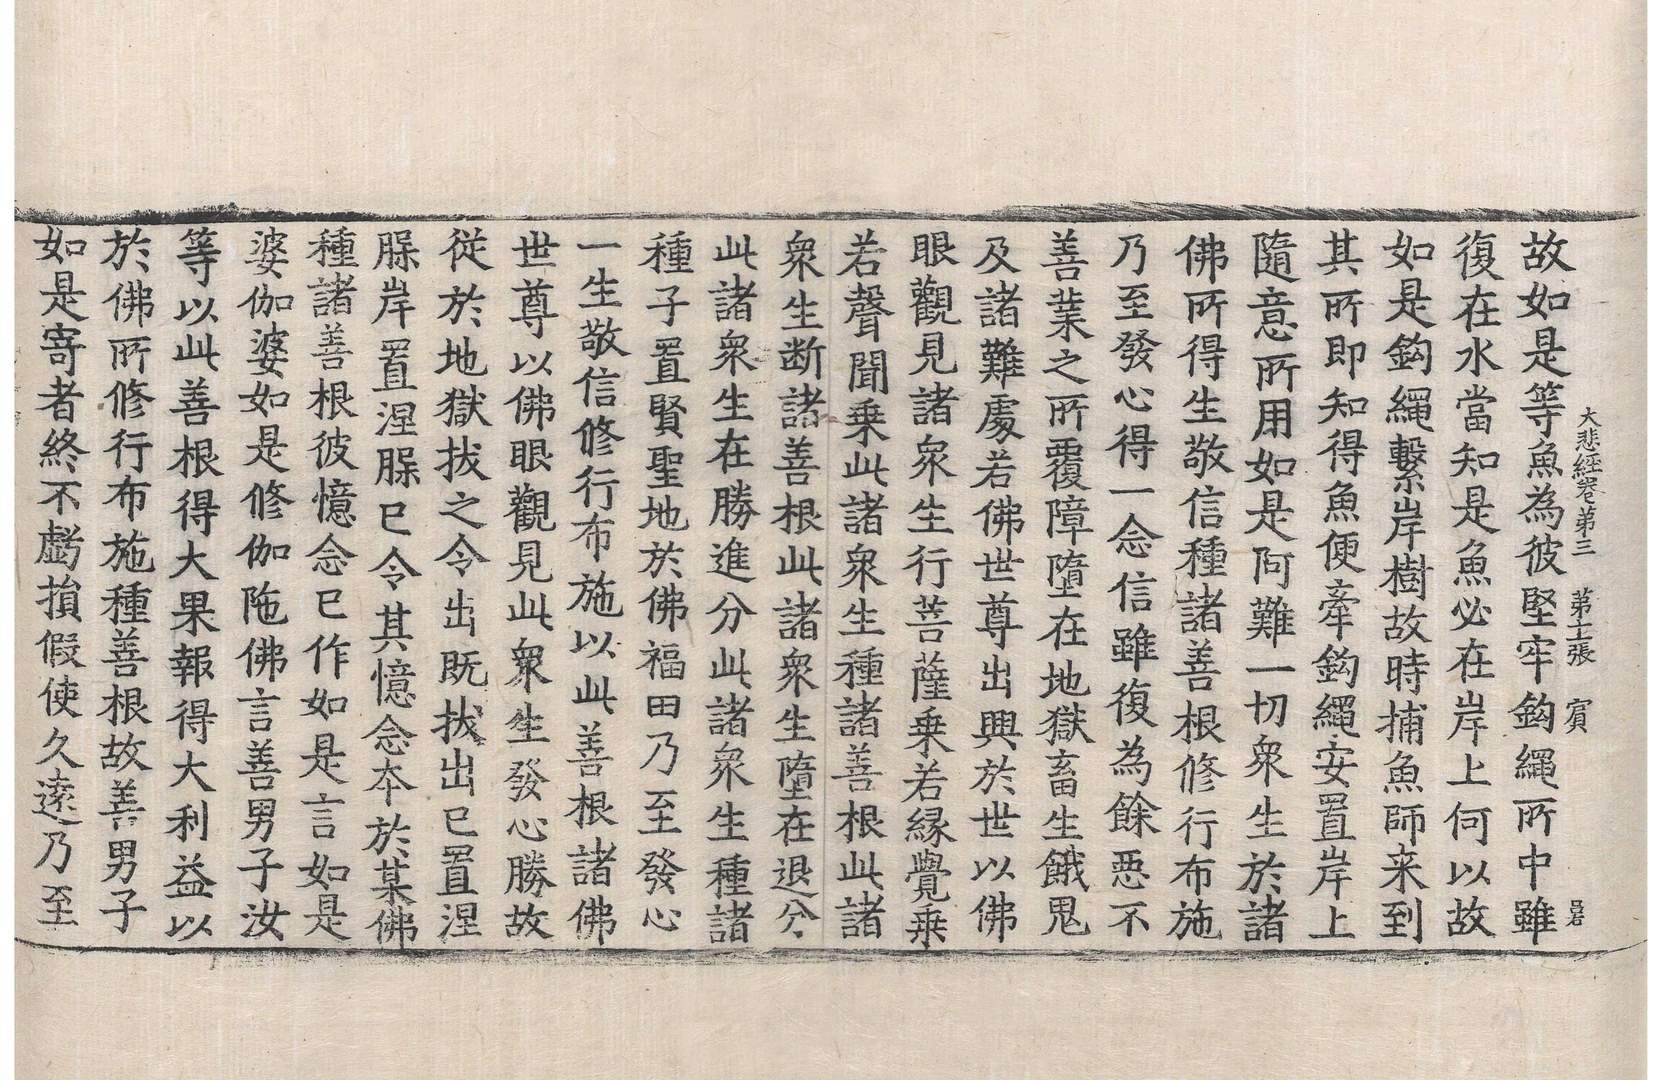 大悲經卷第三 第十二張 賓
故如是等魚為彼堅牢鉤繩所中雖
復在水當知是魚必在岸上何以故
如是鉤繩繫岸樹故時捕魚師来到
其所即知得魚便牽鉤繩安置岸上
隨意所用如是阿難一切衆生於諸
佛所得生敬信種諸善根修行布施
乃至發心得一念信雖復為餘惡不
善業之所覆障墮在地獄畜生餓鬼
及諸難處若佛世尊出興於世以佛
眼觀見諸衆生行菩薩乗若縁覺乗
若聲聞乗此諸衆生種諸善根此諸
衆生断諸善根此諸衆生墮在退分
此諸衆生在勝進分此諸衆生種諸
種子置賢聖地於佛福田乃至發心
一生敬信修行布施以此善根諸佛
世尊以佛眼觀見此衆生發心勝故
従於地獄拔之令出既拔出已置涅
𦙃岸置涅𦙃已令其憶念本於某佛
種諸善根彼憶念已作如是言如是
婆伽婆如是修伽陁佛言善男子汝
等以此善根得大果報得大利益以
於佛所修行布施種善根故善男子
如是寄者終不虧損假使久遠乃至